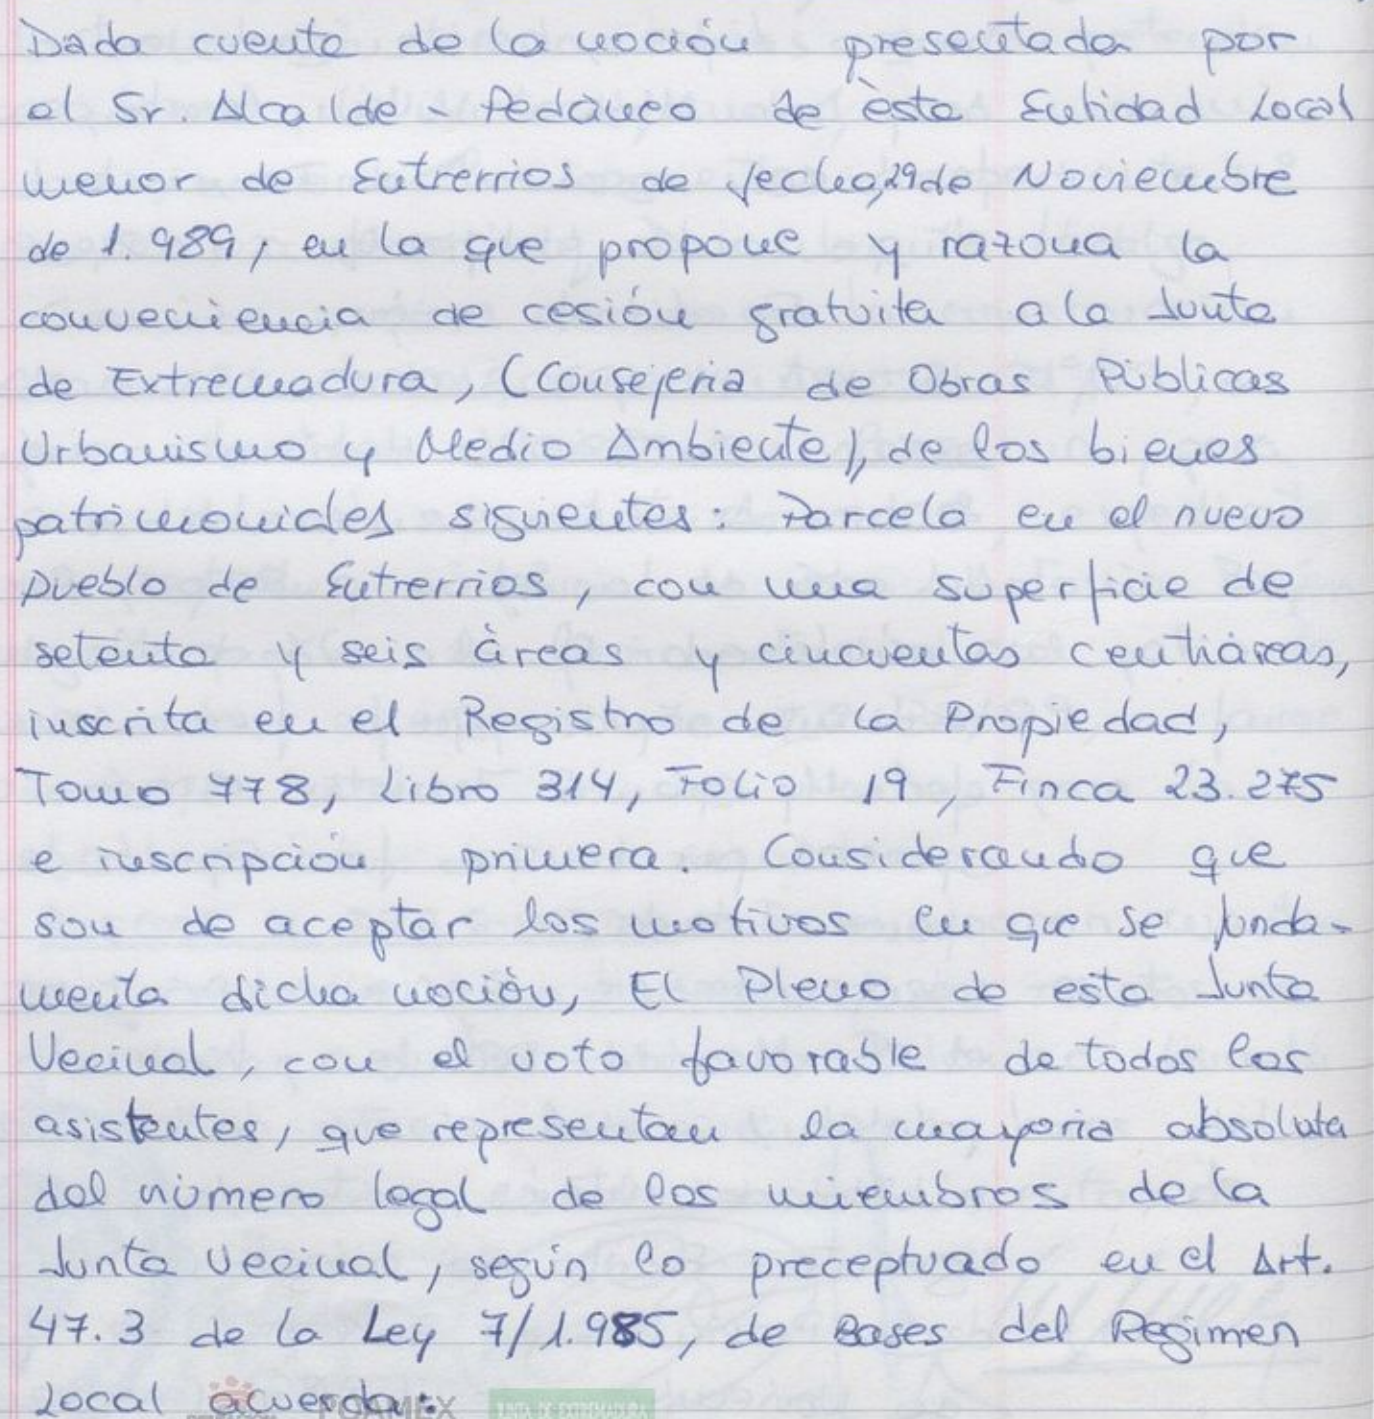 Dada cuenta de la noción presentada por
el Sr. Alcalde - Pedáneo de èsta Entidad Local
menor de Entrerrios de fecha, 29 de Noviembre
de 1.989, en la que propone y razona la
conveniencia de cesión gratuita a la Junta
de Extremadura, (Consejeria de Obras Públicas
Urbanismo y Medio Ambiente), de los bienes
patrimoniales siguientes: Parcela en el nuevo
pueblo de Entrerrios, con una superficie de
setenta y seis àreas y cincuentas centiáreas,
inscrita en el Registro de la Propiedad,
Tomo 778, Libro 314, Folio 19, Finca 23.275
e inscripción primera. Considerando que
son de aceptar los motivos en que se funda-
menta dicha noción, El Pleno de esta Junta
Vecinal, con el voto favorable de todos los
asistentes, que representan la mayoria absoluta
del número legal de los miembros de la
Junta Vecinal, según lo preceptuado en el Art.
47.3 de la Ley 7/1.985, de Bases del Regimen
Local acuerda:
JUNTA DE EXTREMADURA